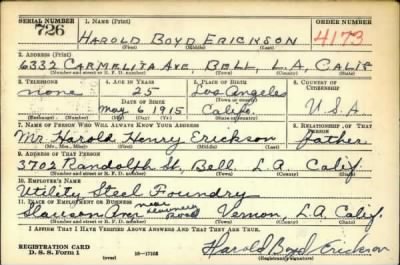 SERIAL NUMBER 1. NAME (Print) ORDER NUMBER
726 HAROLD BOYD ERICKSON 4173
(First) (Middle) (Last)
2. ADDRESS (Print)
6332 CARMELITA AVE, BELL, L.A, CALIF
(Number and street or R. F. D. number) (Town) (County) (State)
3. TELEPHONE 4. AGE IN YEARS 5. PLACE OF BIRTH 6. COUNTRY OF CITIZENSHIP
none 25 Los Angeles
DATE OF BIRTH (Town or county)
May 6 1915 Calif. U.S.A
(Exchange) (Number) (Mo.) (Day) (Yr.) (State or country)
7. NAME OF PERSON WHO WILL ALWAYS KNOW YOUR ADDRESS 8. RELATIONSHIP OF THAT PERSON
Mr. Harold Henry Erickson father
(Mr., Mrs., Miss) (First) (Middle) (Last)
9. ADDRESS OF THAT PERSON
3702 Randolph St, Bell, L.A. Calif.
(Number and street or R. F. D. number) (Town) (County) (State)
10. EMPLOYER'S NAME
Utility Steel Foundry
11. PLACE OF EMPLOYMENT OR BUSINESS
near
Slauson Ave Road Vernon, L.A. Calif.
(Number and street or R. F. D. number) (Town) (County) (State)
I AFFIRM THAT I HAVE VERIFIED ABOVE ANSWERS AND THAT THEY ARE TRUE.
REGISTRATION CARD
D. S. S. Form 1 (over) 16—17105 Harold Boyd Erickson
(Registrant's signature)